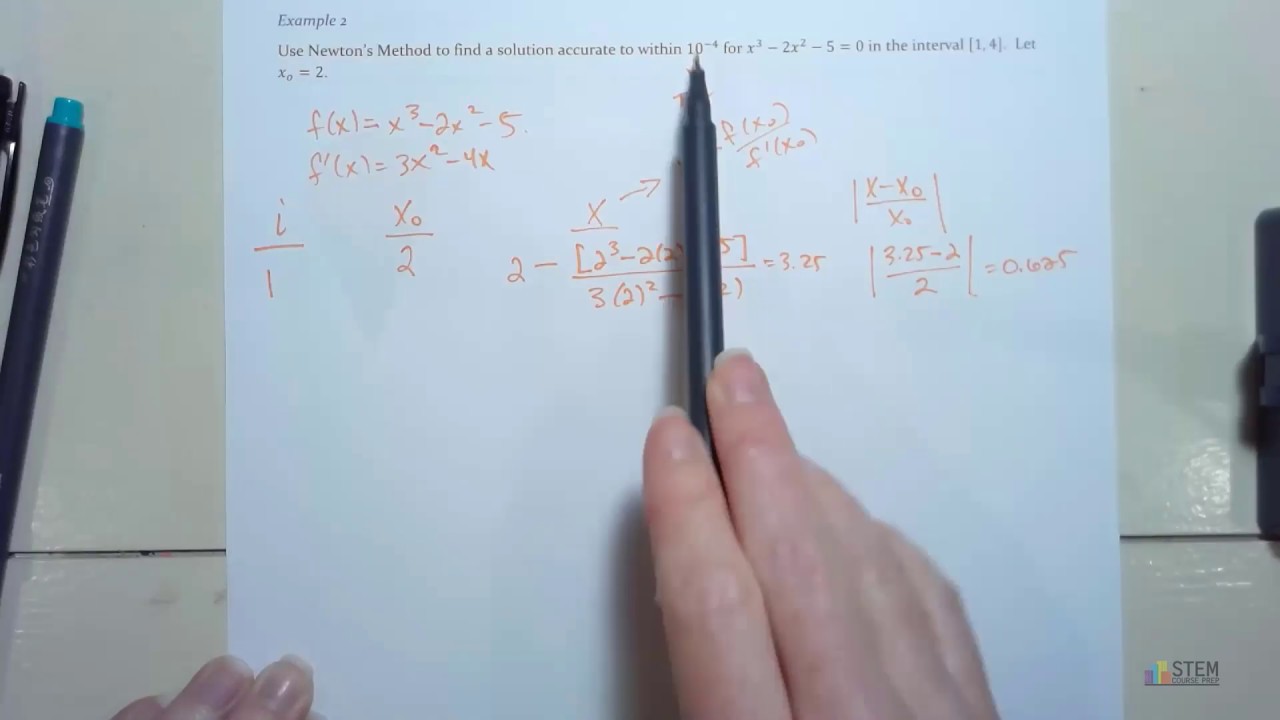 Example 2
Use Newton's Method to find a solution accurate to within 10⁻⁴ for x³ − 2x² − 5 = 0 in the interval [1, 4]. Let
x₀ = 2.
f(x) = x³ − 2x² − 5.
f'(x) = 3x² − 4x
f(x₀)
f'(x₀)
i x₀ x |x−x₀ / x₀|
1 2 2 − [2³ − 2(2 5] / 3(2)² − 2) = 3.25 |3.25−2 / 2| = 0.625
STEM
COURSE PREP